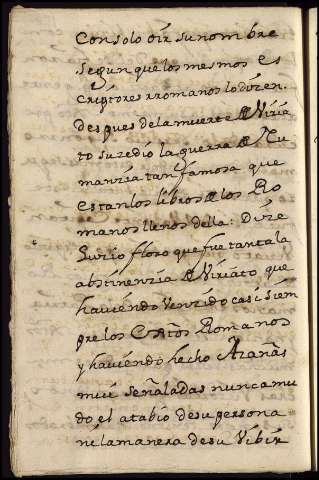 Con solo oír su nombre
segun que los mesmos es
criptores rromanos lo dizen.
despues de la muerte de Viria
to suzedio la guerra de Nu
manzia tan famosa que
estan los libros de los Ro
manos llenos della: Dize
Luzio floro que fue tanta la
abstinenzia de Viriato que
haviendo Venzido casi siem
pre los Romanos
y haviendo hecho Azañas
mui señaladas nunca mu
do el atabio de su persona
ni la manera de su Vibir